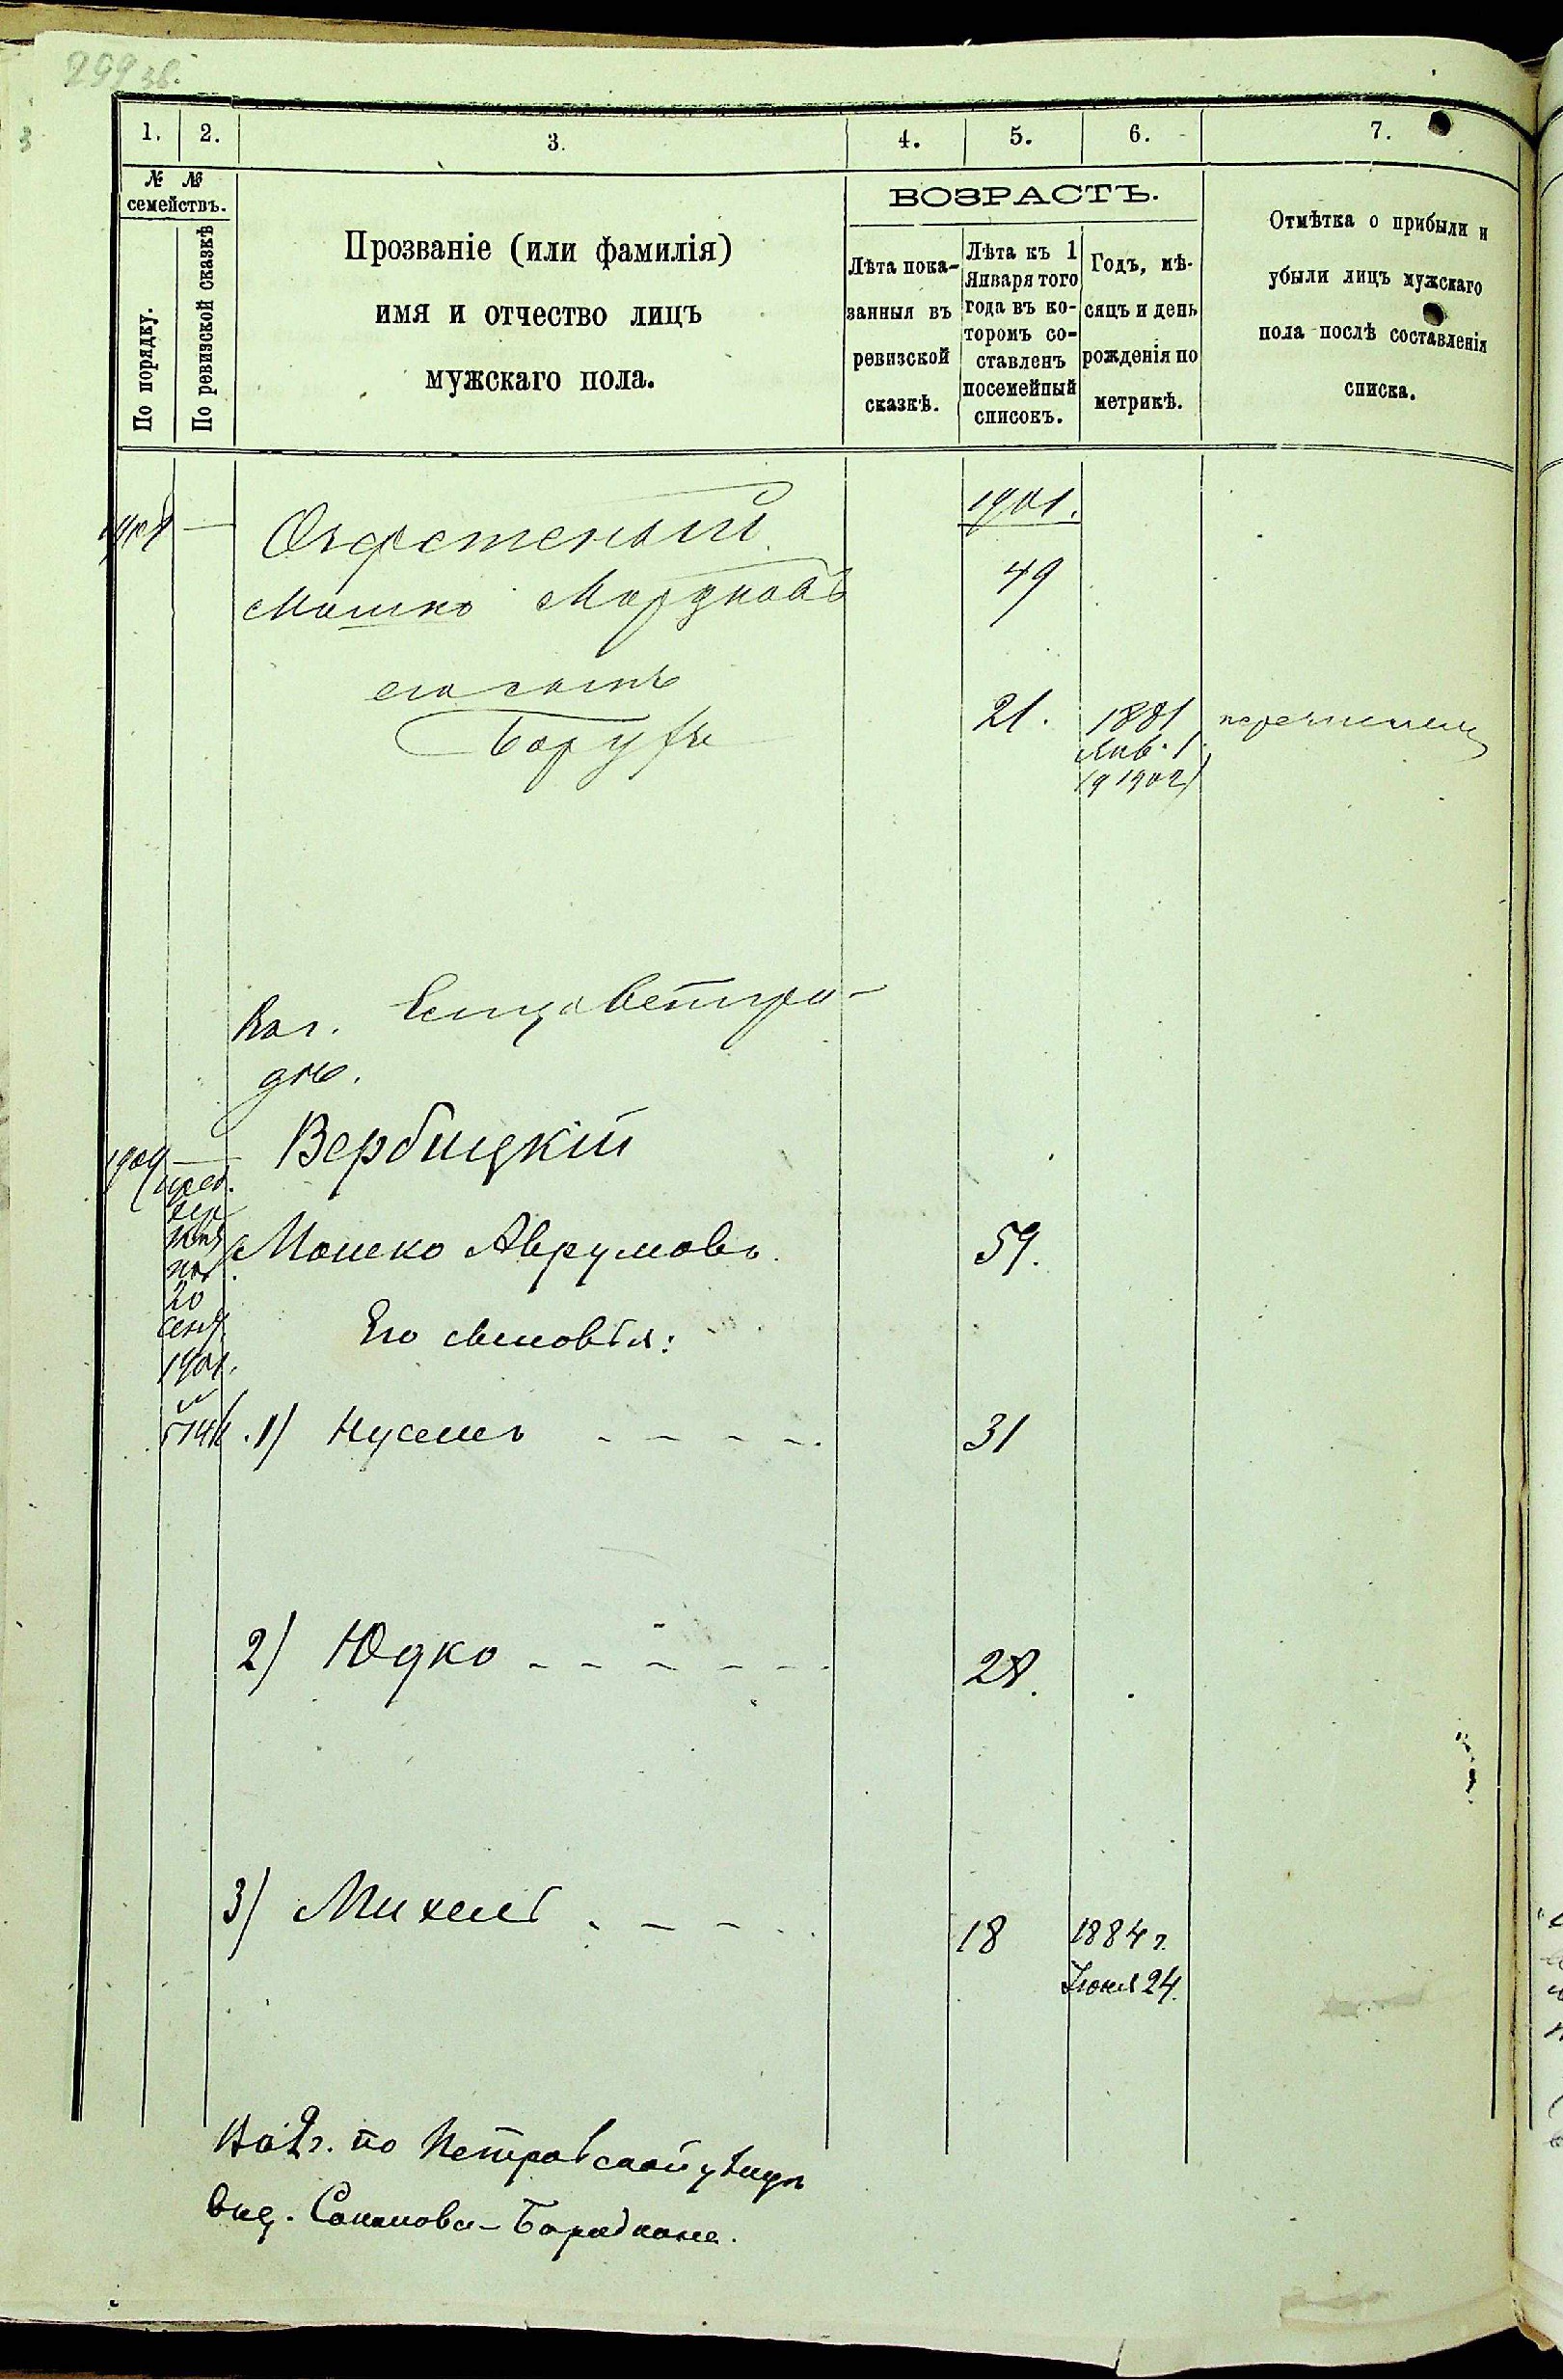 299 зв.
1. 2. 3. 4. 5. 6. 7.
№ №
семействъ.
По порядку.
По ревизской сказкѣ
Прозваніе (или фамилія)
имя и отчество лицъ
мужскаго пола.
ВОЗРАСТЪ.
Лѣта пока-
занныя въ
ревизской
сказкѣ.
Лѣта къ 1
Января того
года въ ко-
торомъ со-
ставленъ
посемейный
списокъ.
Годъ, мѣ-
сяцъ и день
рожденія по
метрикѣ.
Отмѣтка о прибыли и
убыли лицъ мужскаго
пола послѣ составленія
списка.
1901.
Мошко Мордковъ 49
его сынъ
Борухъ 21. 1881 перечисленъ
Янв. 1
Елисаветгра-
дѣ.
1909 — Вербицкій
Мошко Аврумовъ 59.
20
сент.
1901.
Его сыновья:
1) Нусенъ 31
2) Юдко 28.
3) Михель 18 1884 г.
Іюня 24.
по Петровской улицѣ